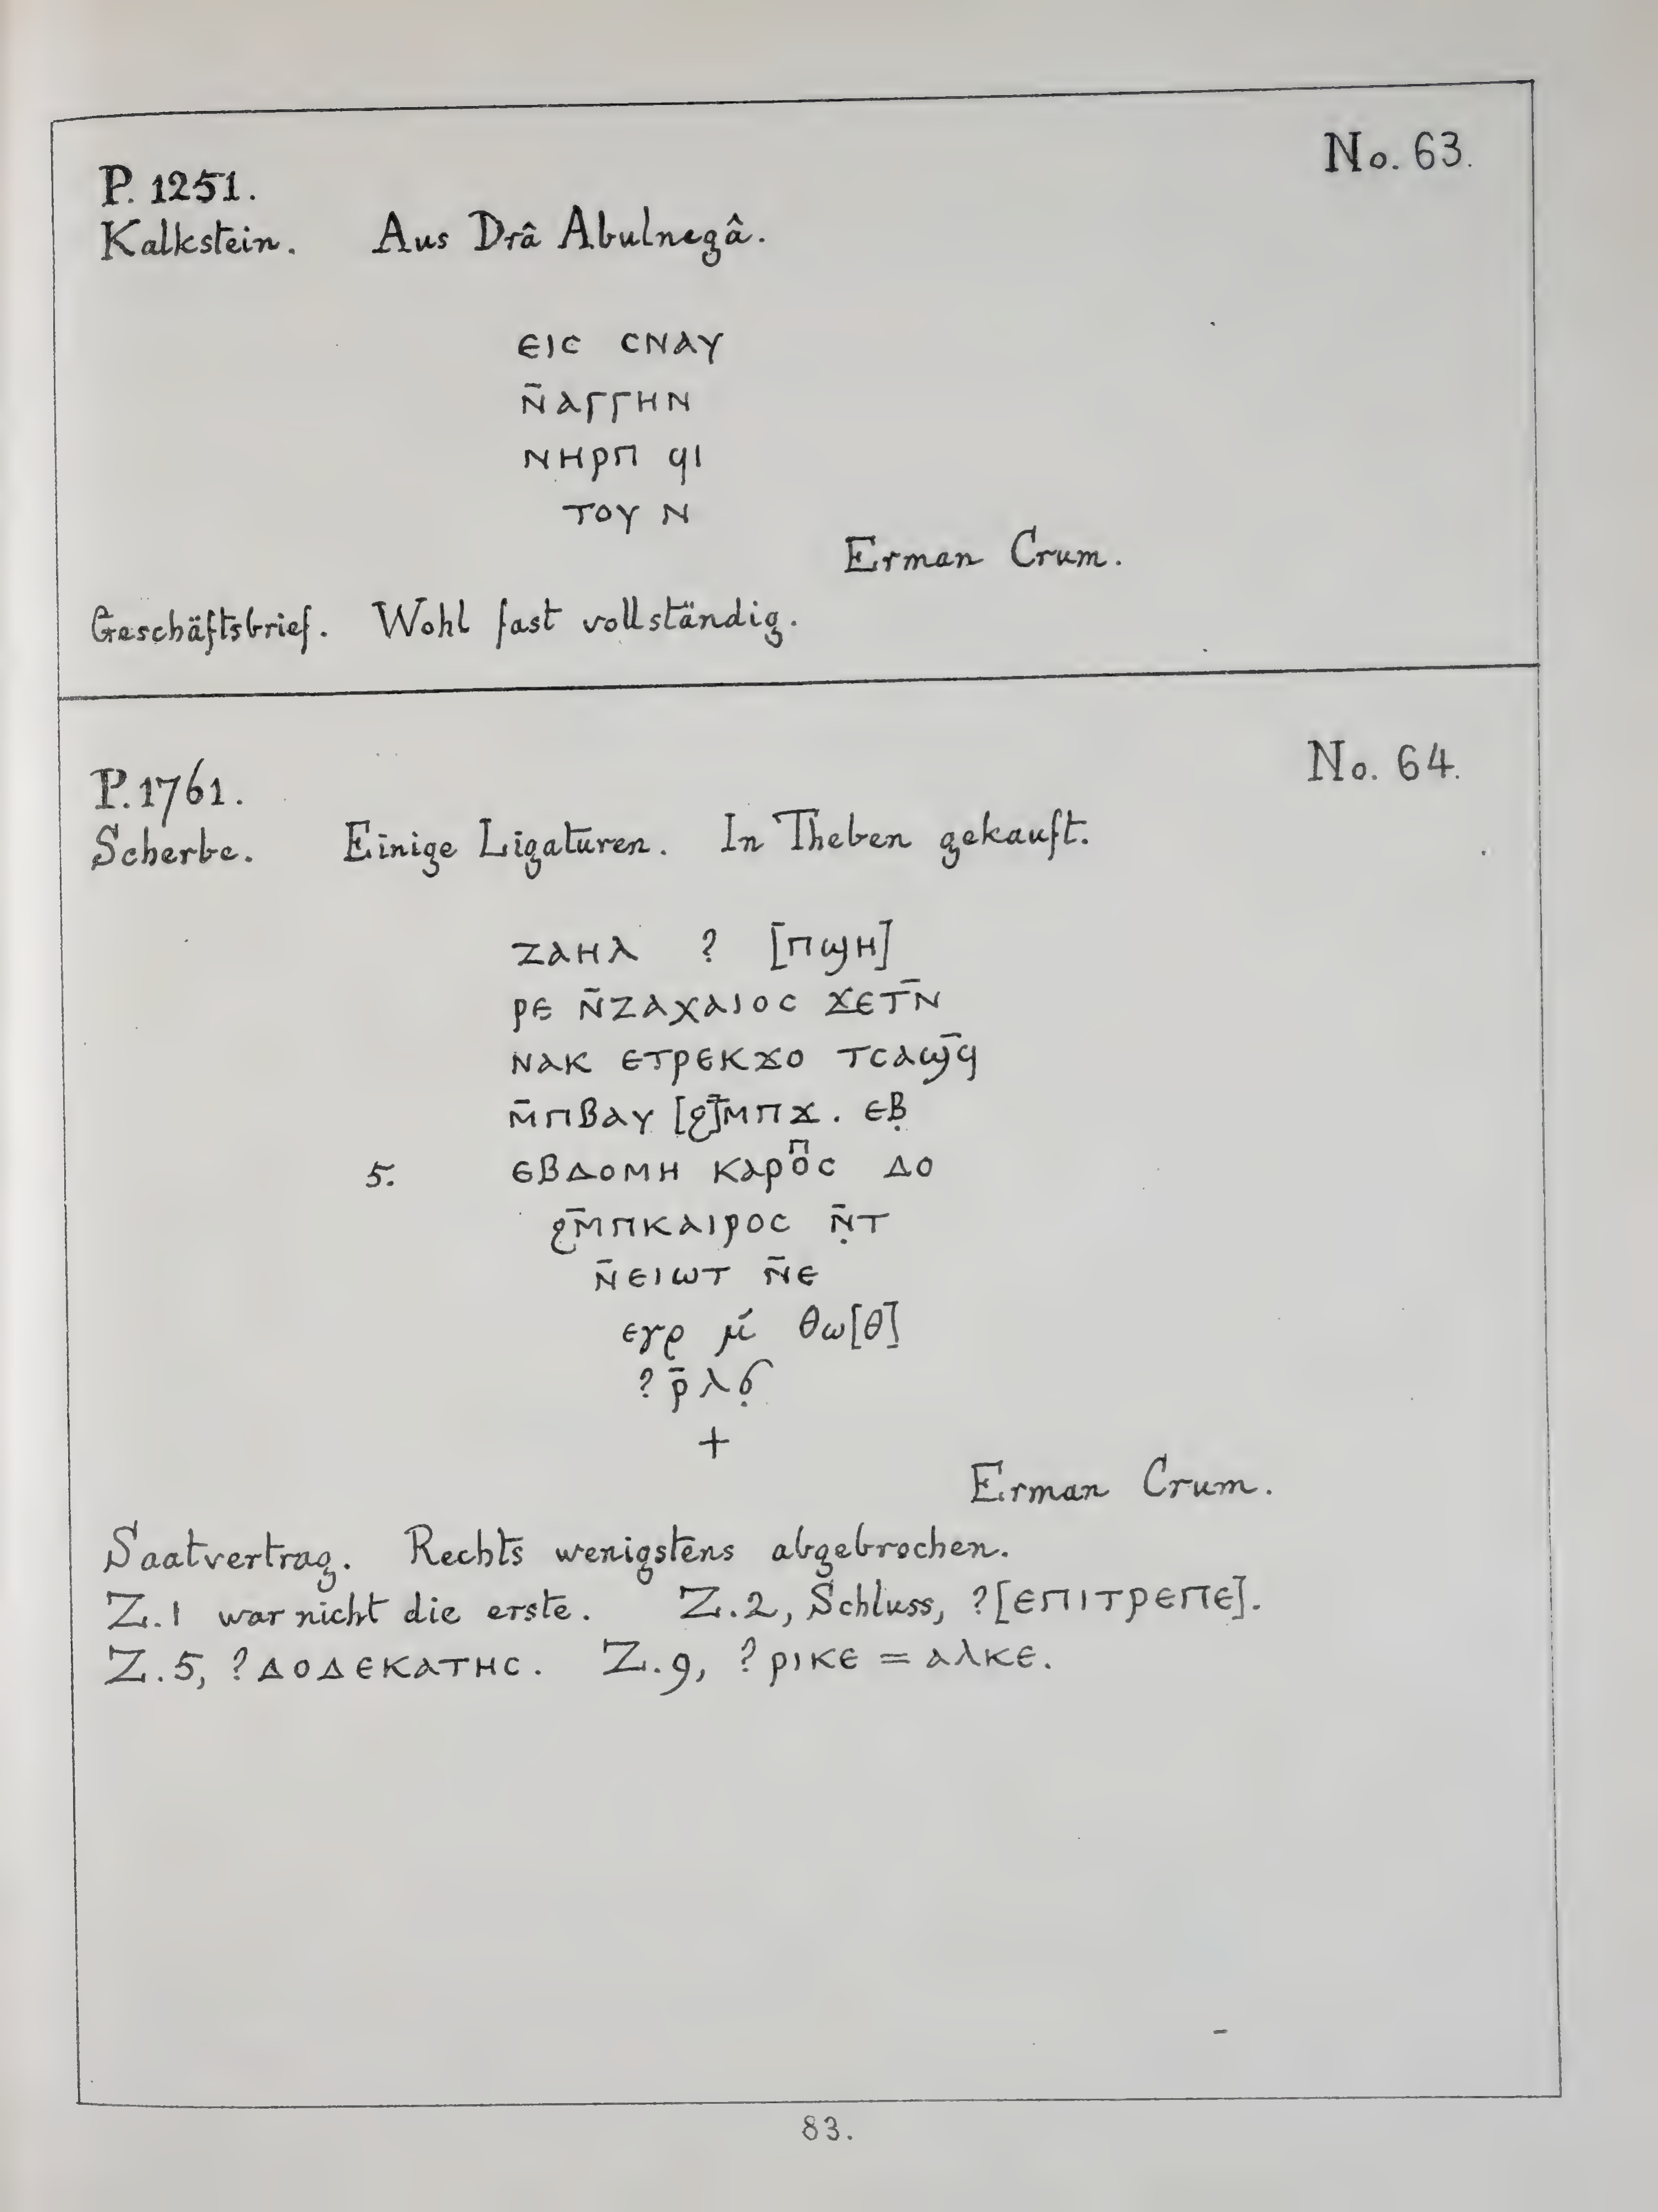 No. 63.
P. 1251.
Kalkstein. Aus Drâ Abulnegâ.
ⲉⲓⲥ ⲥⲛⲁⲩ
ⲛ̄ⲁⲅⲅⲏⲛ
ⲛⲏⲣⲡ ϥⲓ
ⲧⲟⲩ ⲛ
Erman Crum.
Geschäftsbrief. Wohl fast vollständig.
No. 64.
P. 1761.
Scherbe. Einige Ligaturen. In Theben gekauft.
ⲍⲁⲏⲗ ? [ⲡϣⲏ]
ⲣⲉ ⲛ̄ⲍⲁⲭⲁⲓⲟⲥ ϫⲉⲧⲛ̄
ⲛⲁⲕ ⲉⲧⲣⲉⲕϫⲟ ⲧⲥⲁϣϥ̄
ⲙ̄ⲡⲃⲁⲩ [ϩ]ⲙ̄ⲡϫ . ⲉⲃ̣
5. ⲉⲃⲇⲟⲙⲏ ⲕⲁⲣⲡⲟⲥ ⲇⲟ
ϩⲙ̄ⲡⲕⲁⲓⲣⲟⲥ ⲛ̣̄ⲧ
ⲛ̄ⲉⲓⲱⲧ ⲛ̄ⲉ
εγρ μ́ θω[θ]
? ρ̄λϭ̣
+
Erman Crum.
Saatvertrag. Rechts wenigstens abgebrochen.
Z.1 war nicht die erste. Z.2, Schluss, ?[ⲉⲡⲓⲧⲣⲉⲡⲉ].
Z.5, ?ⲇⲟⲇⲉⲕⲁⲧⲏⲥ. Z.9, ? ⲣⲓⲕⲉ = ⲁⲗⲕⲉ.
83.